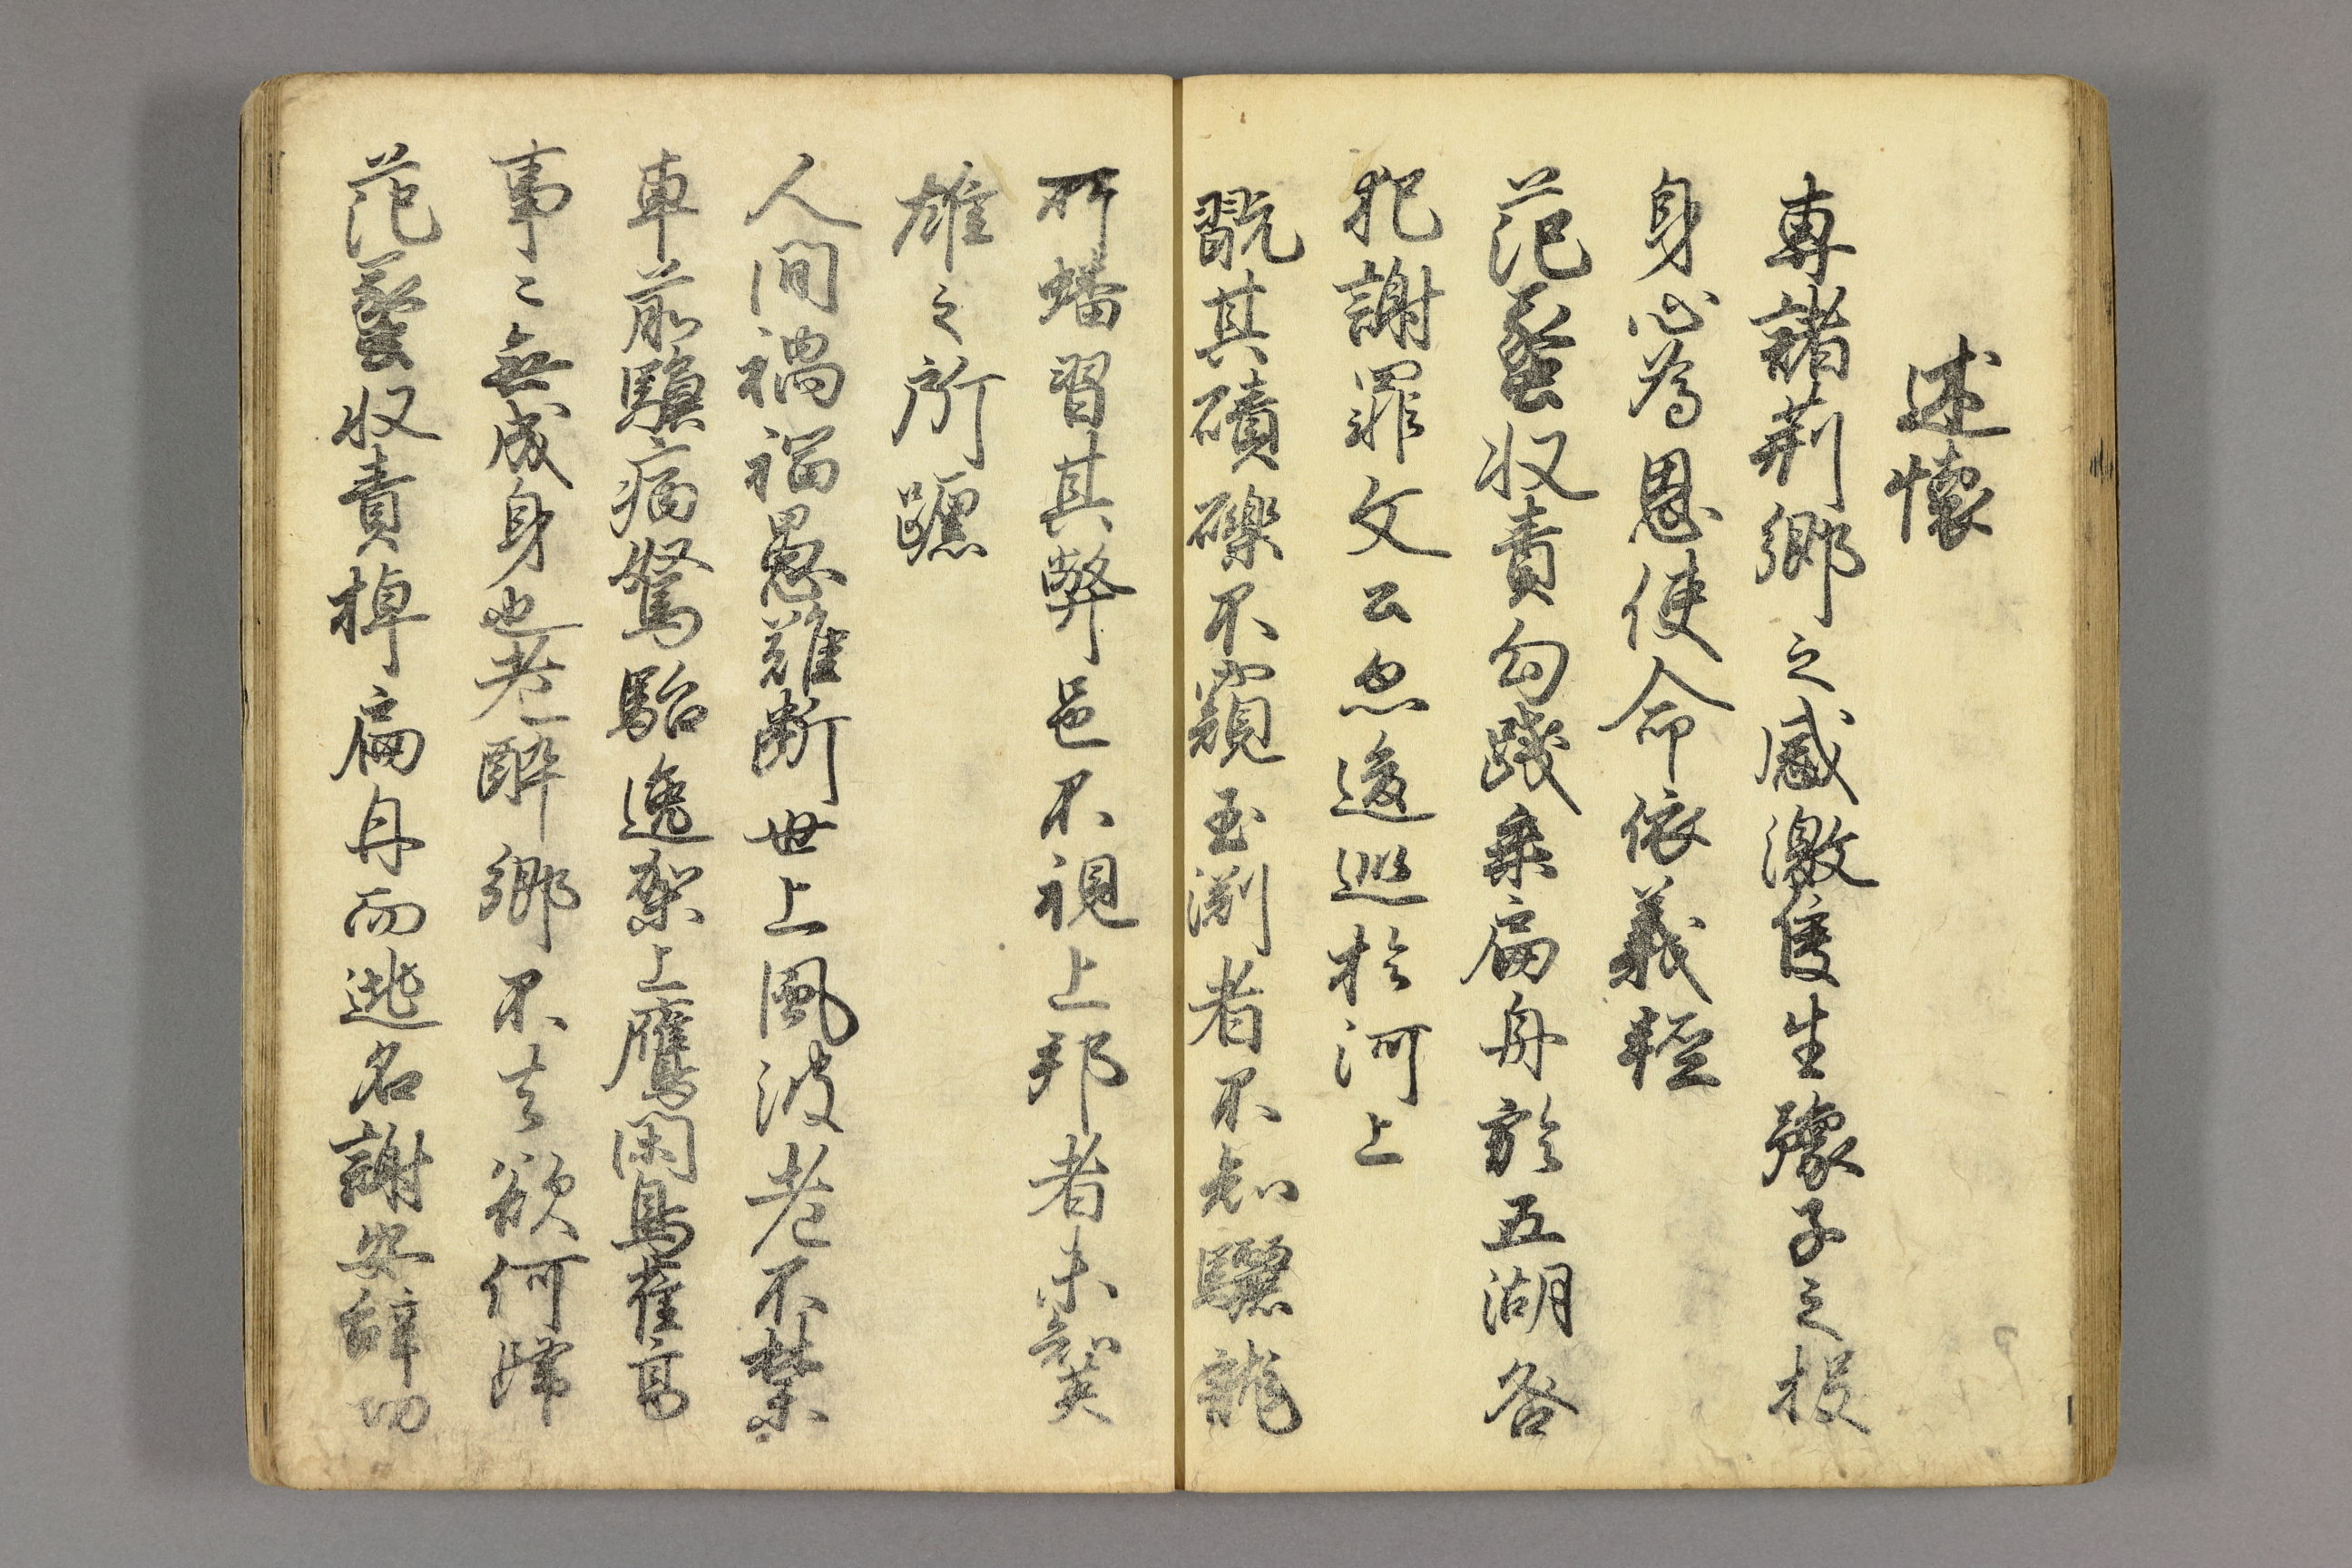 述懐
専諸荊卿之感激侯生豫子之投
身心為恩使命依義軽
范蠡収責勾践乗扁舟於五湖咎
犯謝罪文公忽逡巡於河上
翫其磧礫不窺玉渕者不知驪龍
所蟠習其弊邑不視上邦者未知英
雄之所躔
人間禍福愚難断世上風波老不禁
車前驥病駑駘逸架上鷹閑鳥雀高
事〻無成身也老酔郷不去欲何歸
范蠡収責棹扁舟而逃名謝安辞功